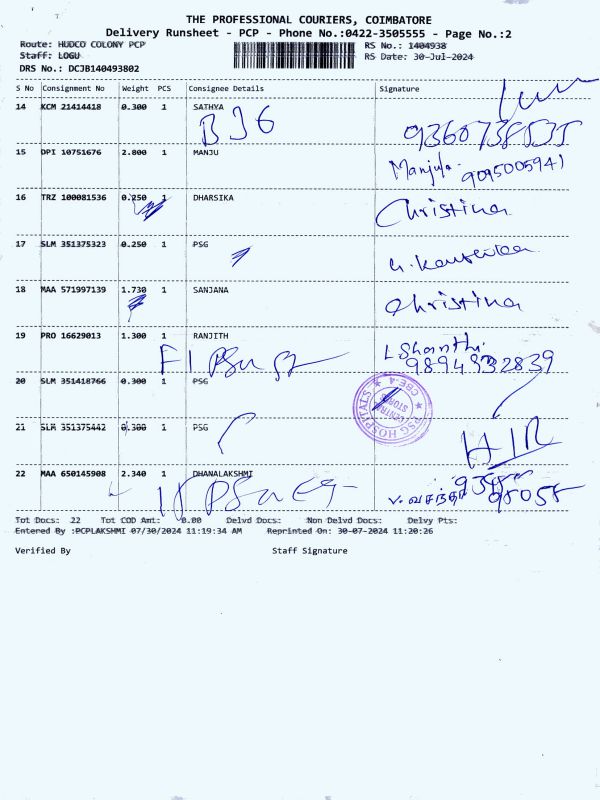 THE PROFESSIONAL COURIERS, COIMBATORE
Delivery Runsheet - PCP - Phone No.:0422-3505555 - Page No.:2
Route: HUDCO COLONY PCP RS No.: 1404938
Staff: LOGU RS Date: 30-Jul-2024
DRS No.: DCJB140493802
S No Consignment No Weight PCS Consignee Details Signature
14 KCM 21414418 0.300 1 SATHYA
B J 6 9360738535
15 DPI 10751676 2.800 1 MANJU Manjula 9095005941
16 TRZ 100081536 0.250 1 DHARSIKA Christina
17 SLM 351375323 0.250 1 PSG
18 MAA 571997139 1.730 1 SANJANA Christina
19 PRO 16629013 1.300 1 RANJITH L Shanthi
F1 9894332839
20 SLM 351418766 0.300 1 PSG
PSG HOSPITALS CBE-4 CENTRAL STORES
21 SLR 351375442 0.300 1 PSG
22 MAA 650145908 2.340 1 DHANALAKSHMI
v. வசந்தா 98058
Tot Docs: 22 Tot COD Amt: 0.00 Delvd Docs: Non Delvd Docs: Delvy Pts:
Entered By :PCPLAKSHMI 07/30/2024 11:19:34 AM Reprinted On: 30-07-2024 11:20:26
Verified By Staff Signature